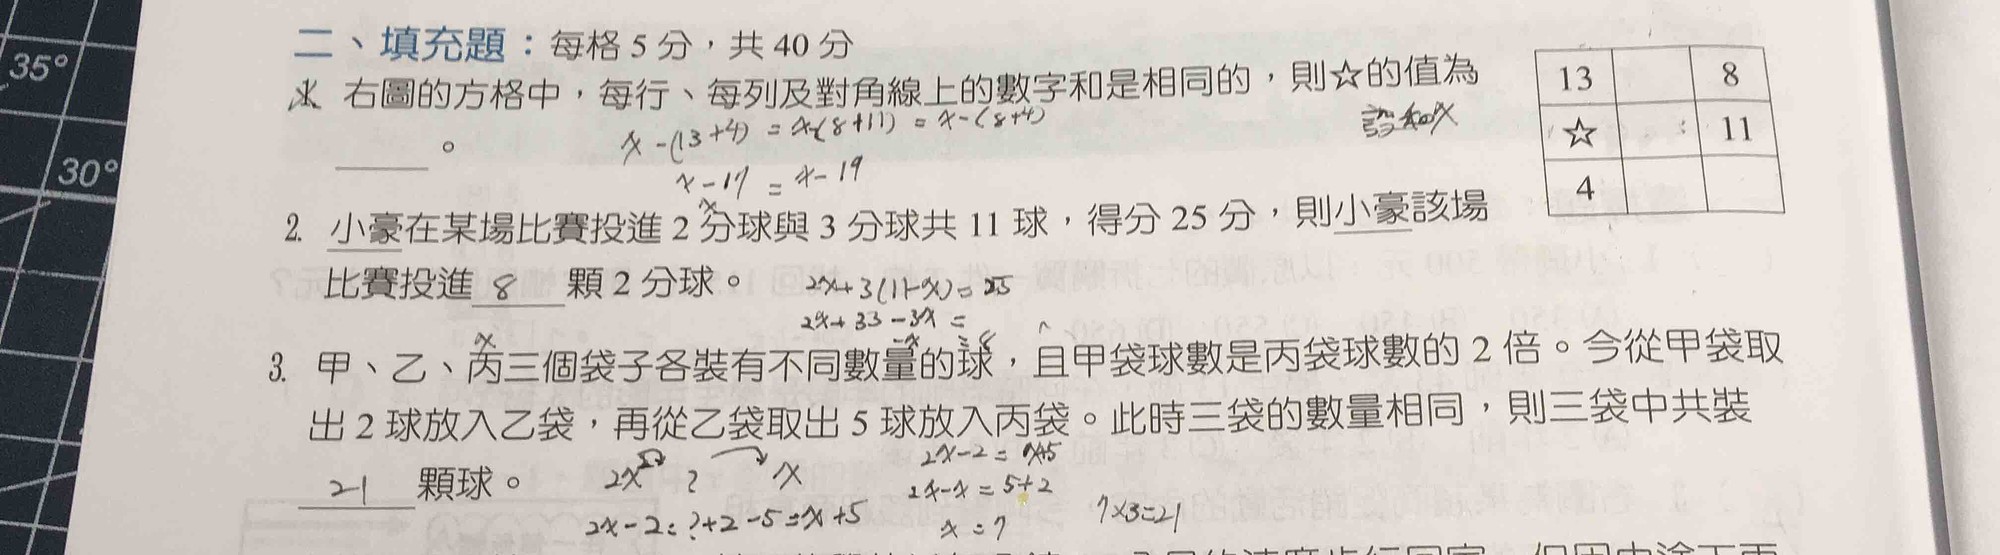 35°
30°
二、填充題：每格 5 分，共 40 分
1. 右圖的方格中，每行、每列及對角線上的數字和是相同的，則☆的值為
設和x
x-(13+4) = x-(8+11) = x-(8+4)
____。
x-17 = x-19
x
13 8
☆ 11
4
2. 小豪在某場比賽投進 2 分球與 3 分球共 11 球，得分 25 分，則小豪該場
比賽投進 8 顆 2 分球。
2x+3(11-x)=25
2x+33-3x=
-x = 8
x
3. 甲、乙、丙三個袋子各裝有不同數量的球，且甲袋球數是丙袋球數的 2 倍。今從甲袋取
出 2 球放入乙袋，再從乙袋取出 5 球放入丙袋。此時三袋的數量相同，則三袋中共裝
21 顆球。
2x ? x
2x-2=?+2-5=x+5
2x-2=x+5
2x-x=5+2
x=7
7×3=21